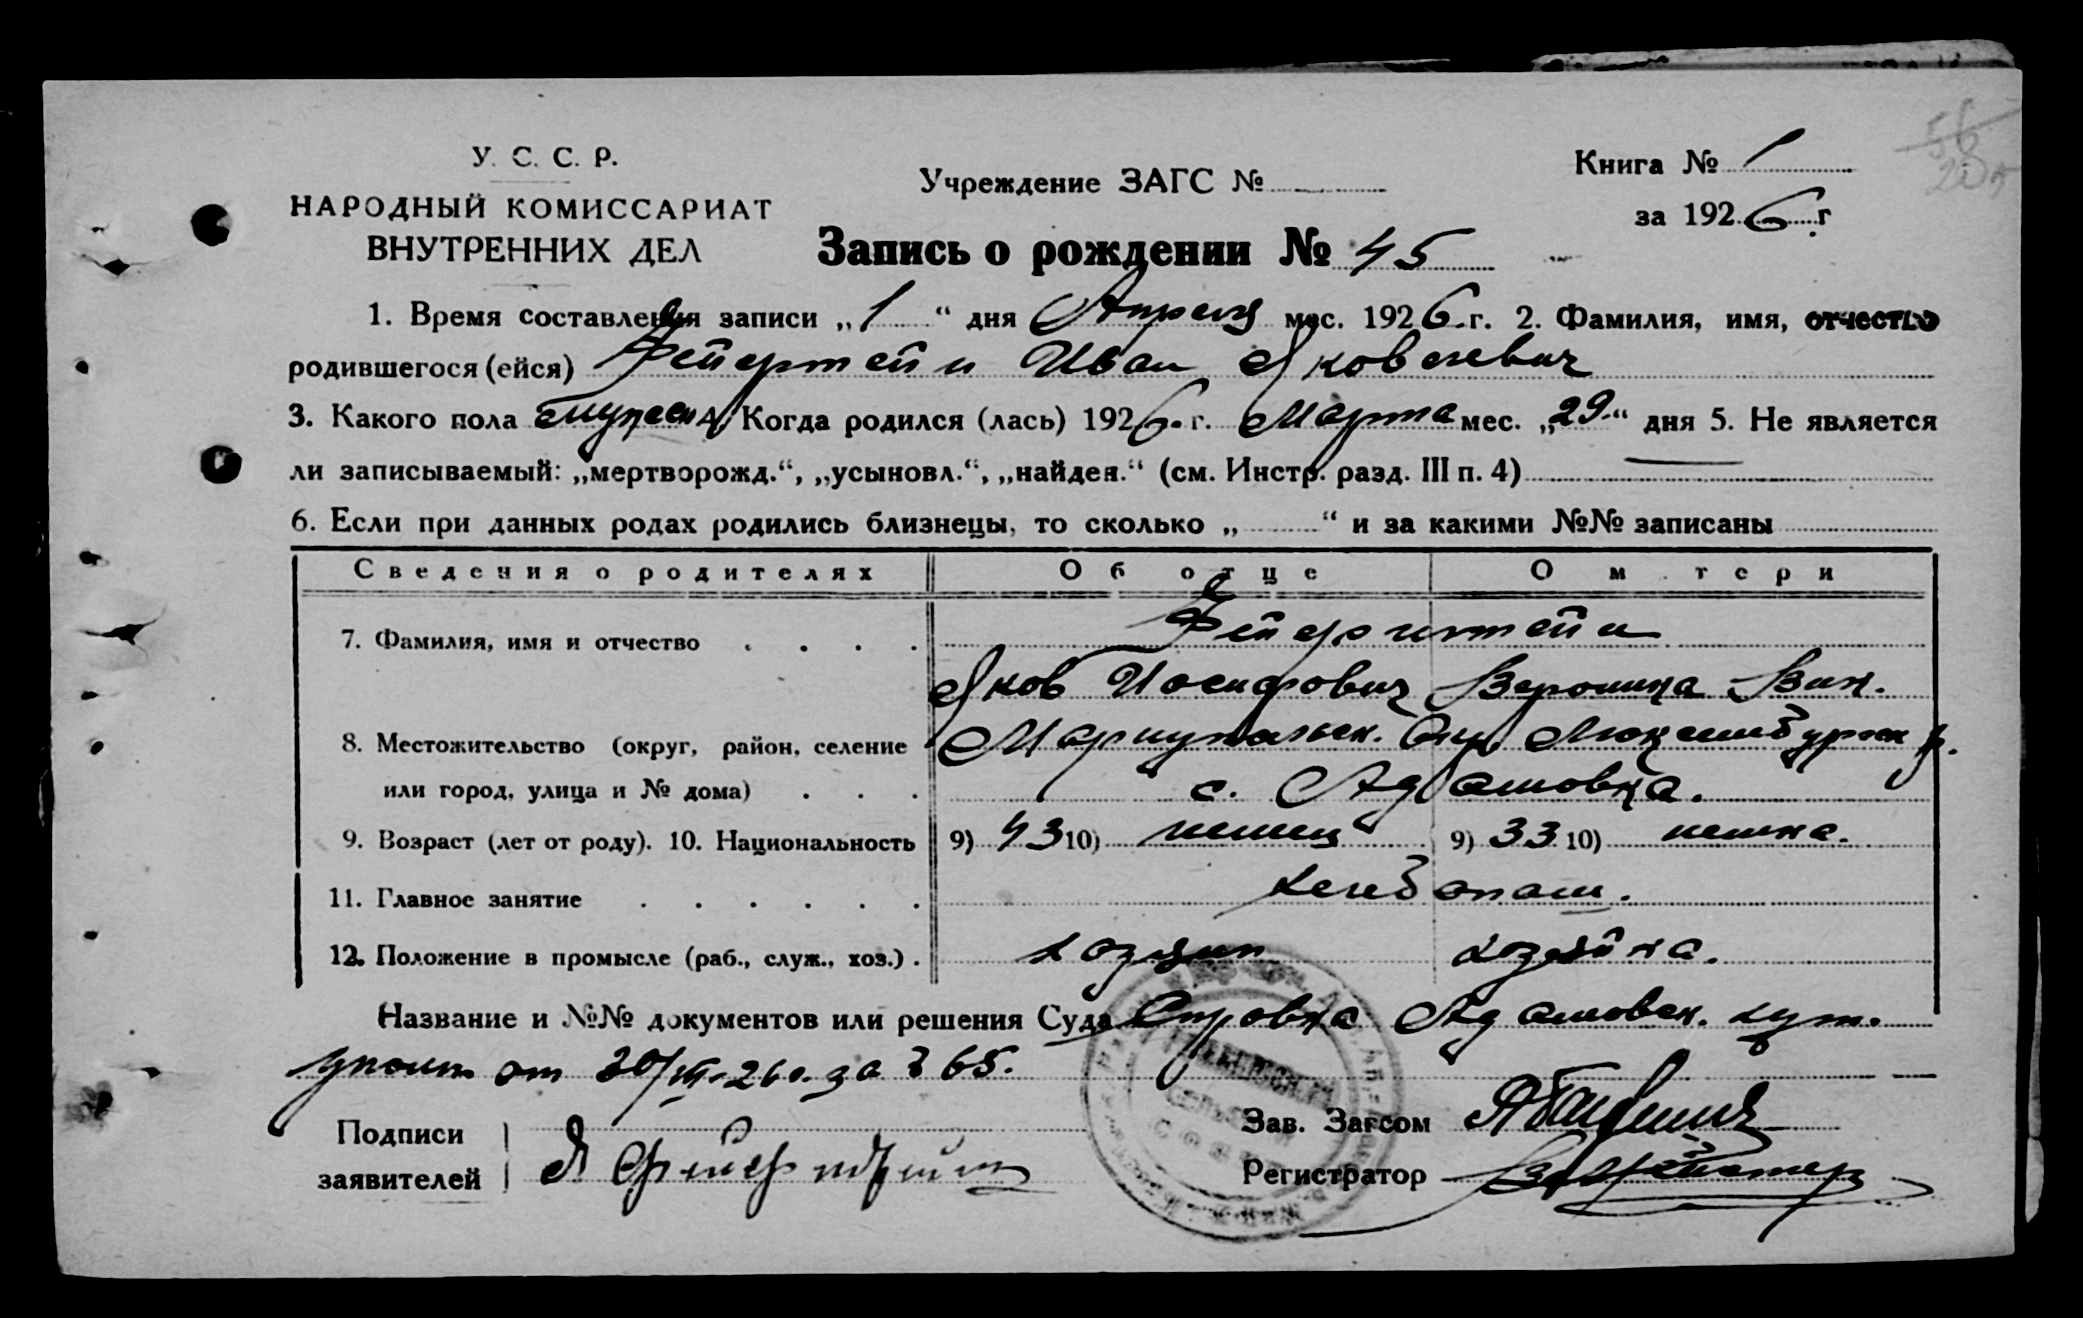 56
205
У. С. С. Р.
НАРОДНЫЙ КОМИССАРИАТ
ВНУТРЕННИХ ДЕЛ
Учреждение ЗАГС №
Книга № 1
за 1926 г.
Запись о рождении № 45
1. Время составления записи „1“ дня Апреля мес. 1926 г. 2. Фамилия, имя, отчество
родившегося (ейся) Фейерштейн Иван Яковлевич
3. Какого пола мужск 4. Когда родился (лась) 1926 г. Марта мес. „29“ дня 5. Не является
ли записываемый: „мертворожд.“, „усыновл.“, „найден.“ (см. Инстр. разд. III п. 4)
6. Если при данных родах родились близнецы, то сколько „ “ и за какими №№ записаны
Сведения о родителях Об отце О матери
7. Фамилия, имя и отчество Фейерштейн
Яков Иосифович Вероника Вик.
8. Местожительство (округ, район, селение Мариупольск. окр. Люксембургск р.
или город, улица и № дома) с. Адамовка.
9. Возраст (лет от роду). 10. Национальность 9) 43 10) немец 9) 33 10) немка.
11. Главное занятие хлебопаш.
12. Положение в промысле (раб., служ., хоз.) хозяин хозяйка.
Название и №№ документов или решения Суда Справка Адамовск. хут.
уполн от 30/III-26 г. за № 65.
Подписи
заявителей Я Фейерштейн
Зав. Загсом
Регистратор